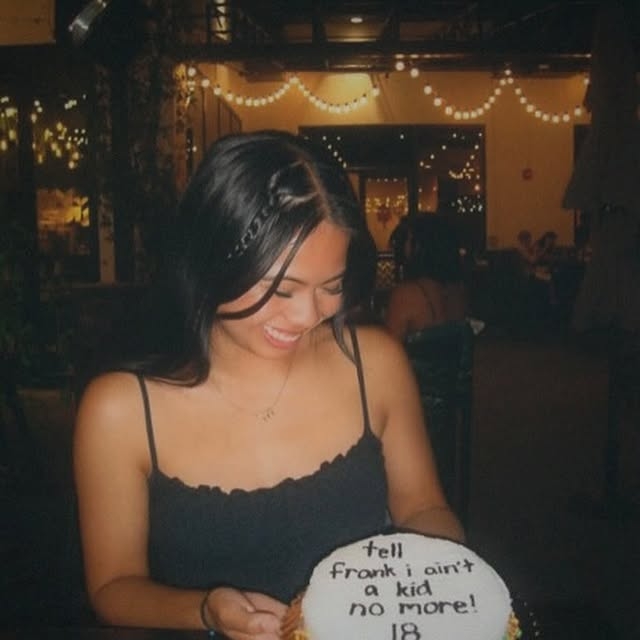 tell
frank i ain't
a kid
no more!
18